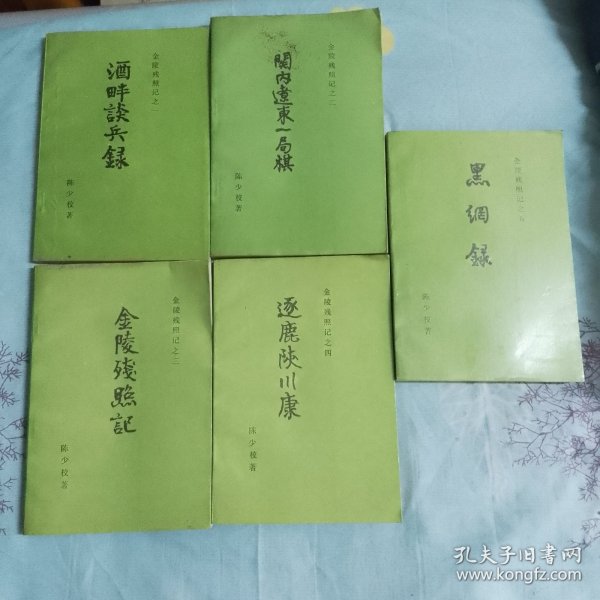 金陵残照记之一
酒畔談兵録
陈少校著
金陵残照记之二
関内遼東一局棋
陈少校著
金陵残照记之五
黑網録
陈少校著
金陵残照记之三
金陵殘照記
陈少校著
金陵残照记之四
逐鹿陝川康
陈少校著
孔夫子旧书网
www.kongfz.com